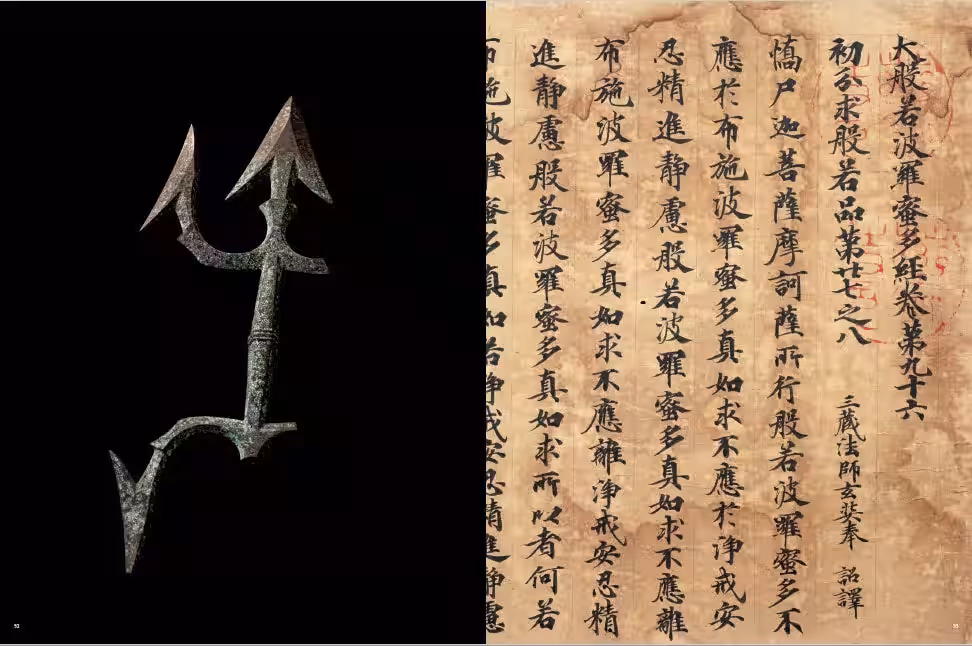 大般若波羅蜜多經卷第九十六
初分求般若品第廿七之八 三藏法師玄奘奉 詔譯
憍尸迦菩薩摩訶薩所行般若波羅蜜多不
應於布施波羅蜜多真如求不應於淨戒安
忍精進靜慮般若波羅蜜多真如求不應離
布施波羅蜜多真如求不應離淨戒安忍精
進靜慮般若波羅蜜多真如求所以者何若
布施波羅蜜多真如若淨戒安忍精進靜慮